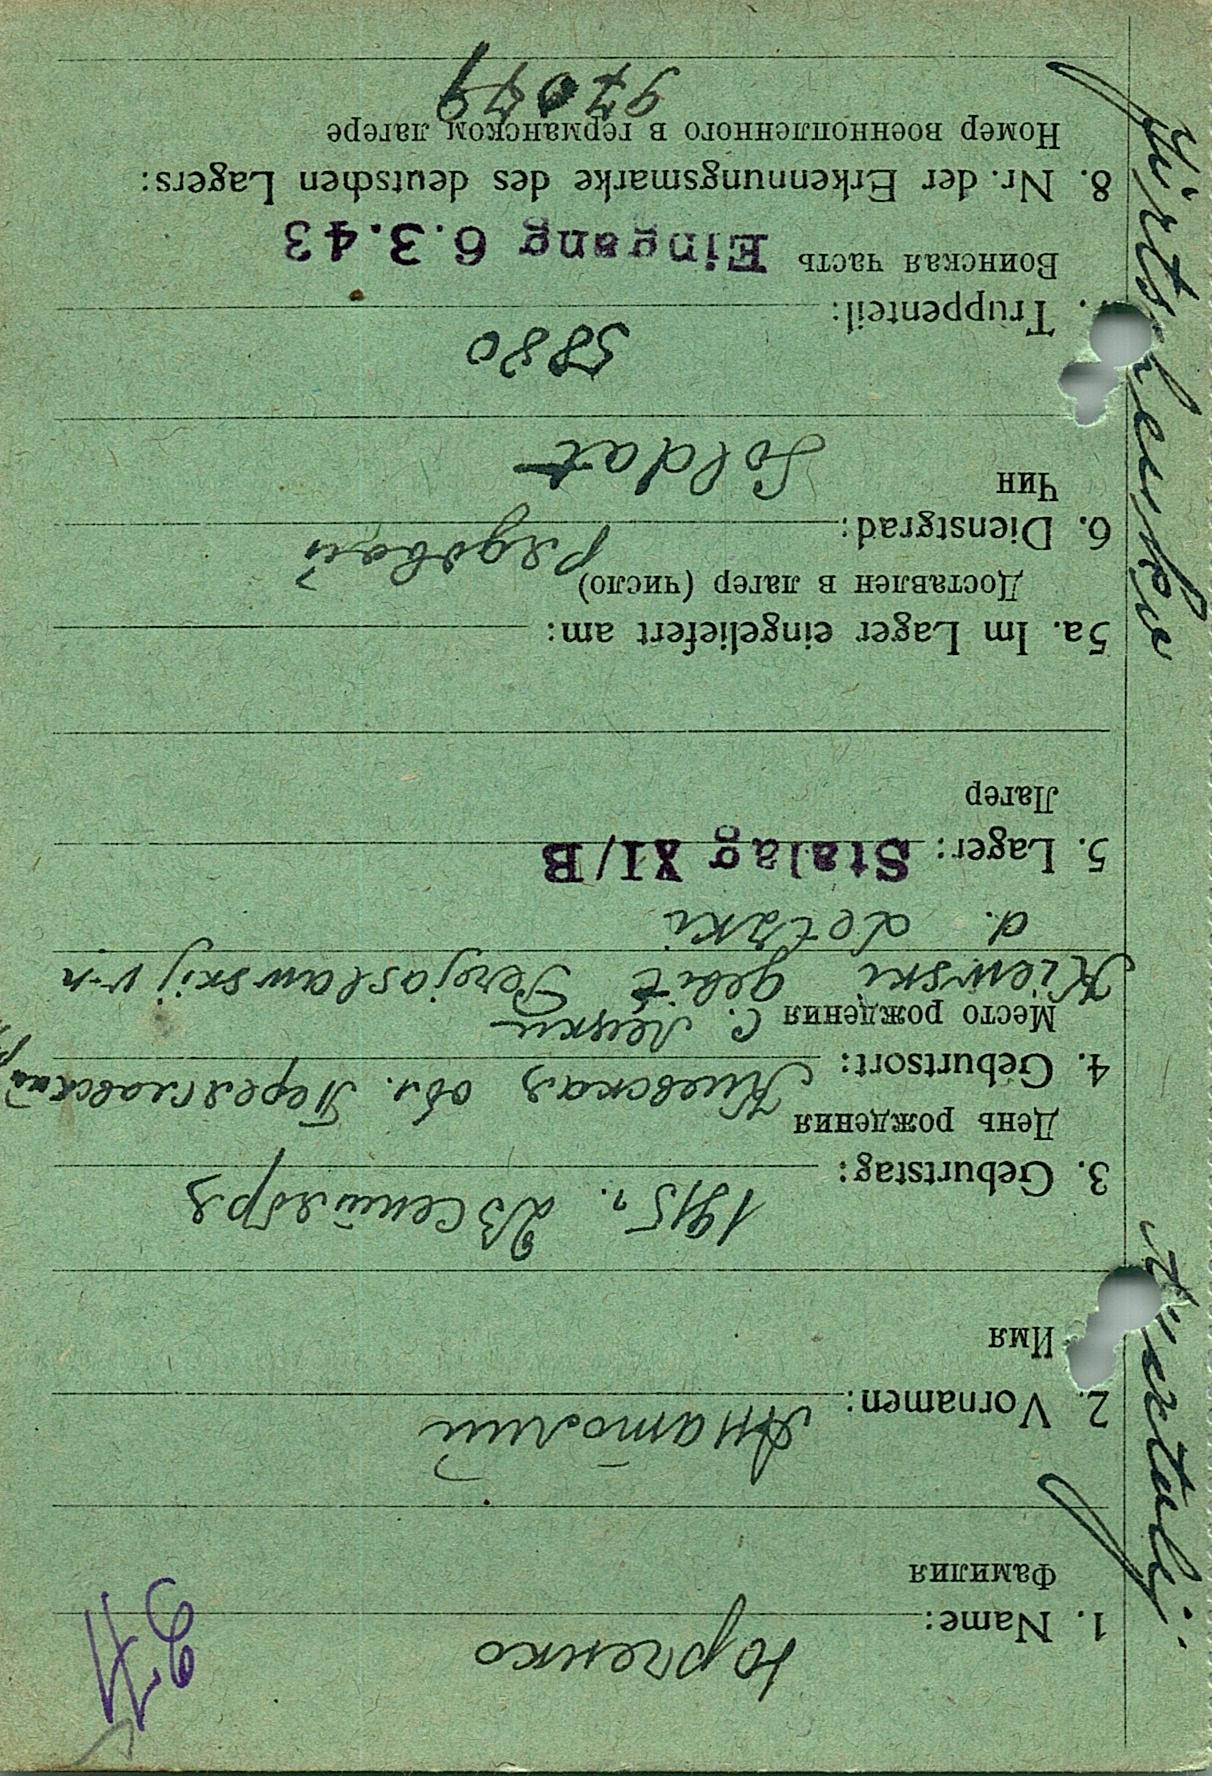 1. Name: Юрченко
Фамилия
2. Vornamen: Анатолий
Имя
1915 г. 23 Сентября
3. Geburtstag:
День рождения
4. Geburtsort: Киевская обл. Переяславский
Место рождения С. Лецки
Kiewski gebit Perejaslawskij r-n
d. Letzki
5. Lager: Stalag XI/B
Лагер
5a. Im Lager eingeliefert am:
Доставлен в лагер (число)
Рядовой
6. Dienstgrad:
Чин
Soldat
5880
7. Truppenteil:
Воинская часть Eingang 6.3.43
8. Nr. der Erkennungsmarke des deutschen Lagers:
Номер военнопленного в германском лагере
97079
Jurtschenko